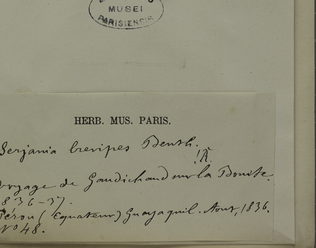 MUSEI
PARISIENSIS
HERB. MUS. PARIS.
Serjania brevipes Benth.
Voyage de Gaudichaud sur la Bonite.
1836-37.
Pérou (Equateur) Guayaquil. Aout, 1836.
No 48.